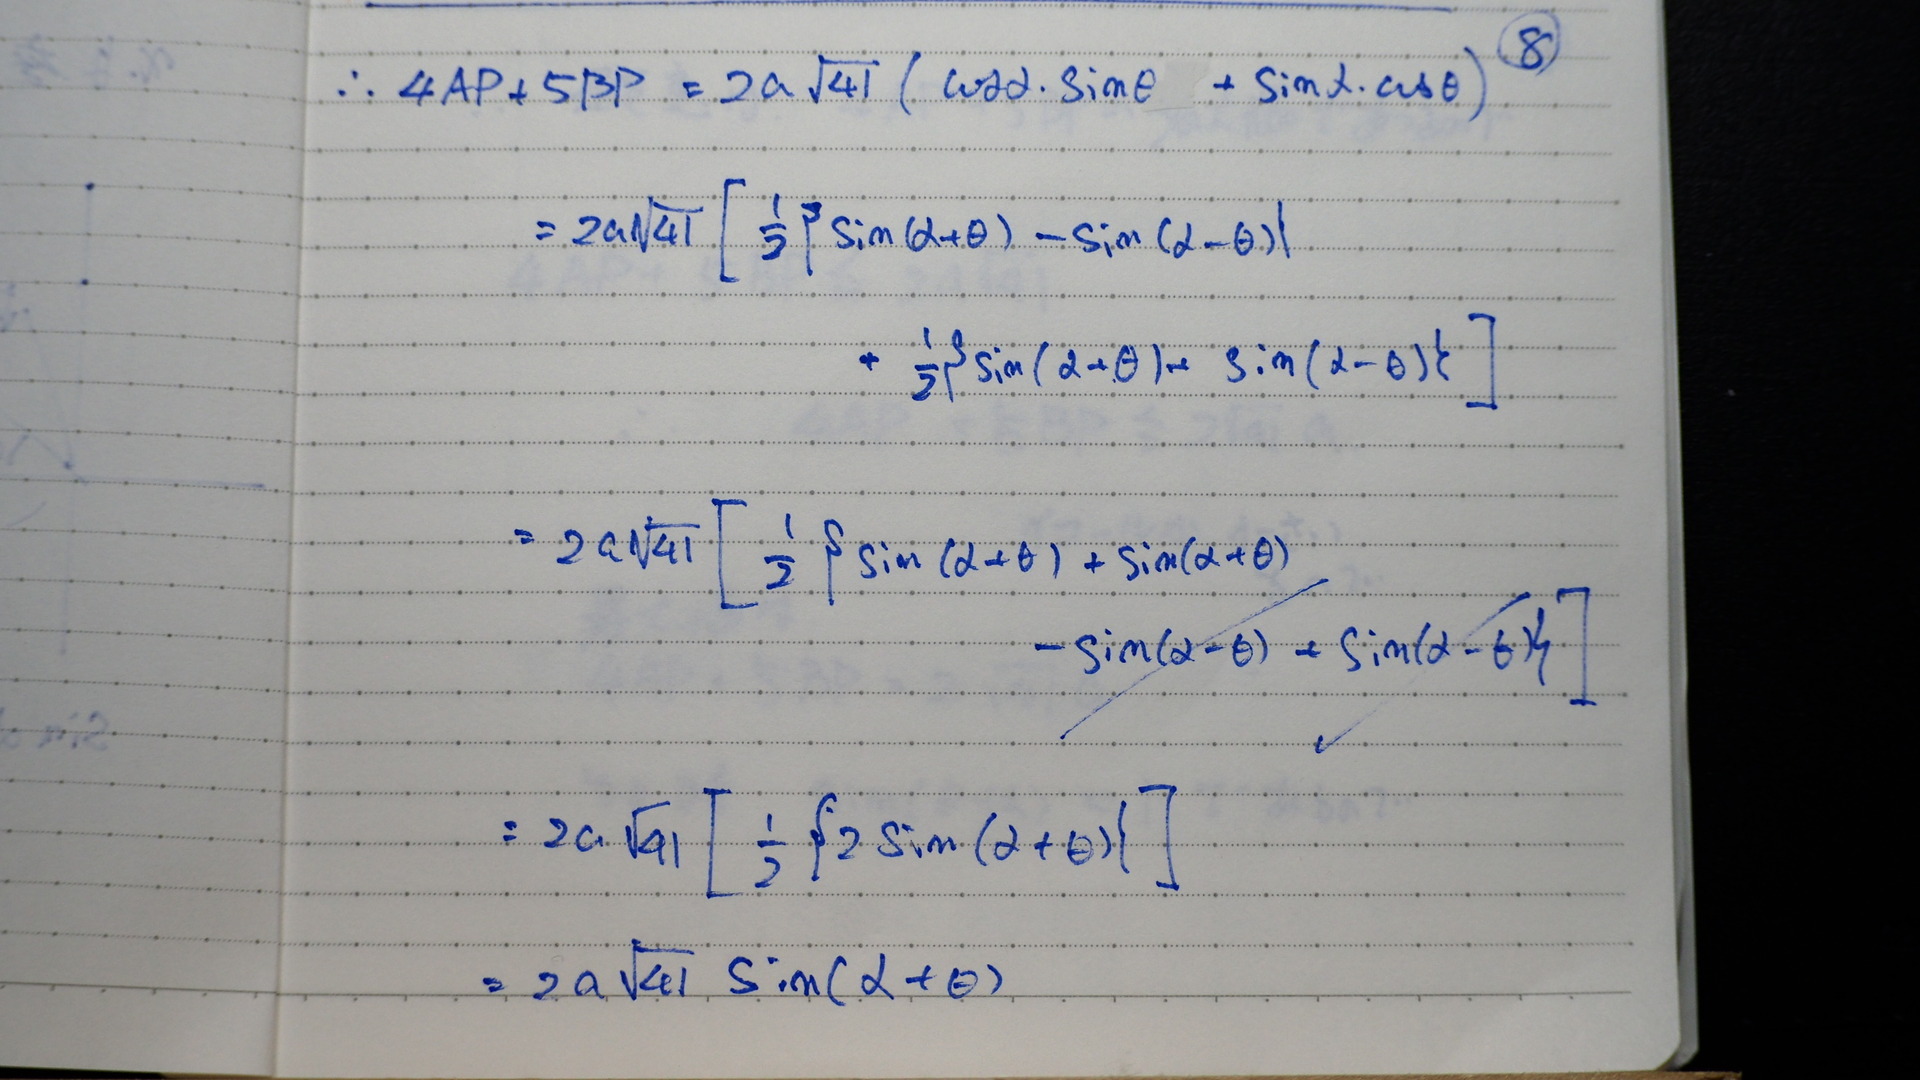 ⑧
∴ 4AP+5BP = 2a√41 ( cosα・sinθ + sinα・cosθ )
= 2a√41 [ 1/2 { sin(α+θ) - sin(α-θ) }
+ 1/2 { sin(α+θ) + sin(α-θ) } ]
= 2a√41 [ 1/2 { sin(α+θ) + sin(α+θ)
- sin(α-θ) + sin(α-θ) } ]
= 2a√41 [ 1/2 { 2 sin(α+θ) } ]
= 2a√41 sin(α+θ)